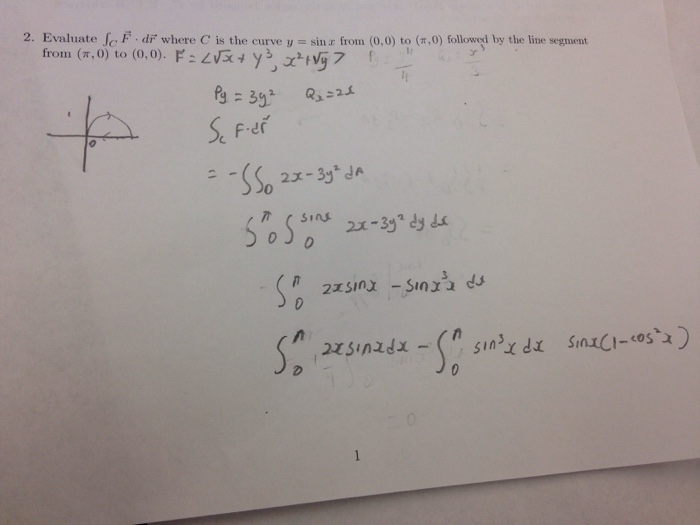 2. Evaluate ∫_C F⃗ · dr⃗ where C is the curve y = sin x from (0,0) to (π,0) followed by the line segment
from (π,0) to (0,0). F⃗ = <√x + y³, x² + √y>
Py = 3y² Qx = 2x
∫_C F·dr⃗
1
0
= -∫∫_D 2x - 3y² dA
∫_0^π ∫_0^sinx 2x - 3y² dy dx
-∫_0^π 2x sinx - sin x³x dx
∫_0^π 2x sinx dx - ∫_0^π sin³x dx sinx(1-cos²x)
1